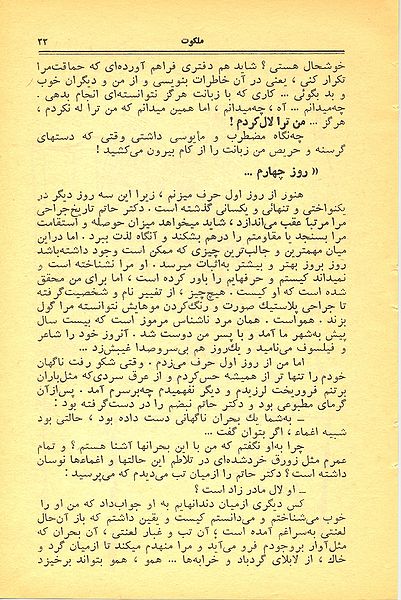 ملکوت ۳۳
خوشحال هستی ؟ شاید هم دفتری فراهم آورده‌ای که حماقت‌مرا
تکرار کنی ، یعنی در آن خاطرات بنویسی و از من و دیگران خوب
و بد بگوئی ... کاری که با زبانت هرگز نتوانسته‌ای انجام بدهی .
چه‌میدانم ... آه ، چه‌میدانم ، اما همین میدانم که من ترا له نکردم ،
هرگز ... من ترا لال‌کردم !
چه‌نگاه مضطرب و مأیوسی داشتی وقتی که دستهای
گرسنه و حریص من زبانت را از کام بیرون می‌کشید !
« روز چهارم ...
هنوز از روز اول حرف میزنم ، زیرا این سه روز دیگر در
یکنواختی و تنهائی و یکسانی گذشته است . دکتر حاتم تاریخ‌جراحی
مرا مرتباً عقب می‌اندازد ، شاید میخواهد میزان حوصله و استقامت
مرا بسنجد یا مقاومتم را درهم بشکند و آنگاه لذت ببرد . اما دراین
میان مهمترین و جالب‌ترین چیزی که ممکن است وجود داشته‌باشد
روز بروز بهتر و بیشتر به‌اثبات میرسد . او مرا نشناخته است و
نمیداند کیستم و حرفهایم را باور کرده است ، اما برای من محقق
شده است که او کیست . هیچ‌چیز ، از تغییر نام و شخصیت‌گرفته
تا جراحی پلاستیک صورت و رنگ‌کردن موهایش نتوانسته مرا گول
بزند . هم‌واست . همان مرد ناشناس مرموز است که بیست سال
پیش به‌شهر ما آمد و با پسر من دوست شد . آنروز خود را شاعر
و فیلسوف می‌نامید و یک‌روز هم بی‌سروصدا غیبش‌زد ...
اما من از روز اول حرف می‌زدم . وقتی شکو رفت ناگهان
خودم را تنها تر از همیشه حس‌کردم و از عرق سردی‌که مثل‌باران
برتنم فروریخت لرزیدم و دیگر نفهمیدم چه‌برسرم آمد . پس‌ازآن
گرمای مطبوعی بود و دکتر حاتم نبضم را در دست‌گرفته بود :
ــ به‌شما یک بحران ناگهانی دست داده بود ، حالتی بود
شبیه اغماء ، اگر بتوان گفت ...
چرا به‌او نگفتم که من با این بحرانها آشنا هستم ؟ و تمام
عمرم مثل زورق خردشده‌ای در تلاطم این حالتها و اغماءها نوسان
داشته است ؟ دکتر حاتم را ازمیان تب می‌دیدم که می‌پرسید :
ــ او لال مادر زاد است ؟
کس دیگری ازمیان دندانهایم به او جواب‌داد که من او را
خوب می‌شناختم و می‌دانستم کیست و یقین داشتم که باز آن‌حال
لعنتی به‌سراغم آمده است ؛ آن تب و غبار لعنتی ، آن بحران که
مثل‌آوار بروجودم فرو می‌آید و مرا منهدم میکند تا ازمیان گرد و
خاک ، از لابلای گردباد و خرابه‌ها ... همو ، همو بتواند برخیزد